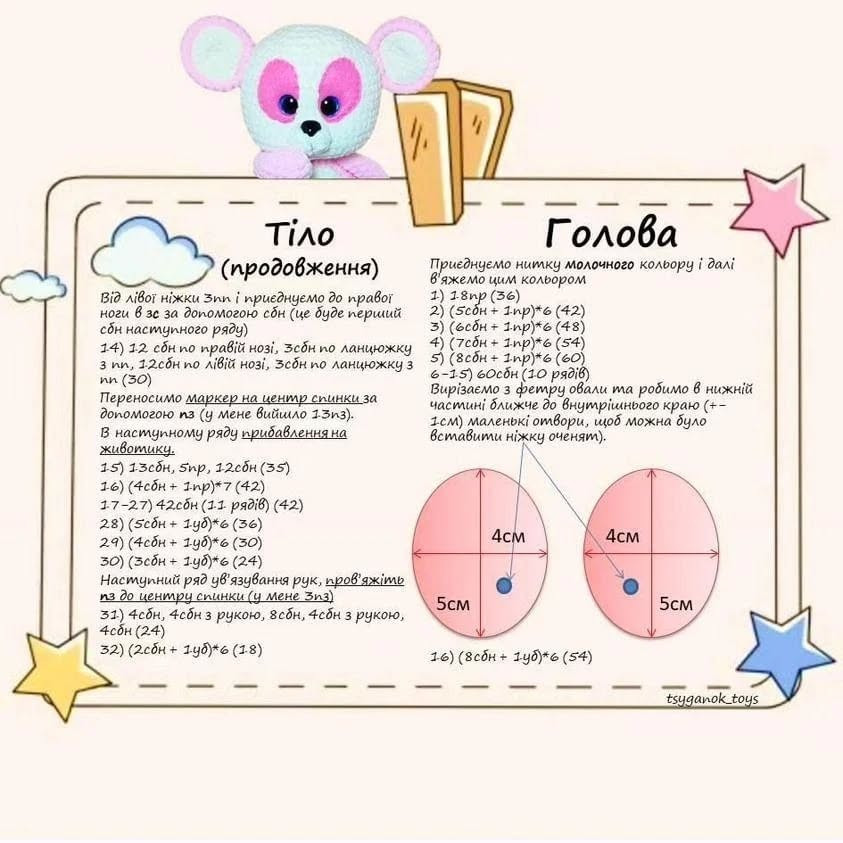 Тіло
(продовження)
Від лівої ніжки 3пп і приєднуємо до правої
ноги в зс за допомогою сбн (це буде перший
сбн наступного ряду)
14) 12 сбн по правій нозі, 3сбн по ланцюжку
з пп, 12сбн по лівій нозі, 3сбн по ланцюжку з
пп (30)
Переносимо маркер на центр спинки за
допомогою пз (у мене вийшло 13пз).
В наступному ряду прибавлення на
животику.
15) 13сбн, 5пр, 12сбн (35)
16) (4сбн + 1пр)*7 (42)
17-27) 42сбн (11 рядів) (42)
28) (5сбн + 1уб)*6 (36)
29) (4сбн + 1уб)*6 (30)
30) (3сбн + 1уб)*6 (24)
Наступний ряд ув'язування рук, пров'яжіть
пз до центру спинки (у мене 3пз)
31) 4сбн, 4сбн з рукою, 8сбн, 4сбн з рукою,
4сбн (24)
32) (2сбн + 1уб)*6 (18)
Голова
Приєднуємо нитку молочного кольору і далі
в'яжемо цим кольором
1) 18пр (36)
2) (5сбн + 1пр)*6 (42)
3) (6сбн + 1пр)*6 (48)
4) (7сбн + 1пр)*6 (54)
5) (8сбн + 1пр)*6 (60)
6-15) 60сбн (10 рядів)
Вирізаємо з фетру овали та робимо в нижній
частині ближче до внутрішнього краю (+-
1см) маленькі отвори, щоб можна було
вставити ніжку оченят).
4см
4см
5см
5см
16) (8сбн + 1уб)*6 (54)
tsyganok_toys